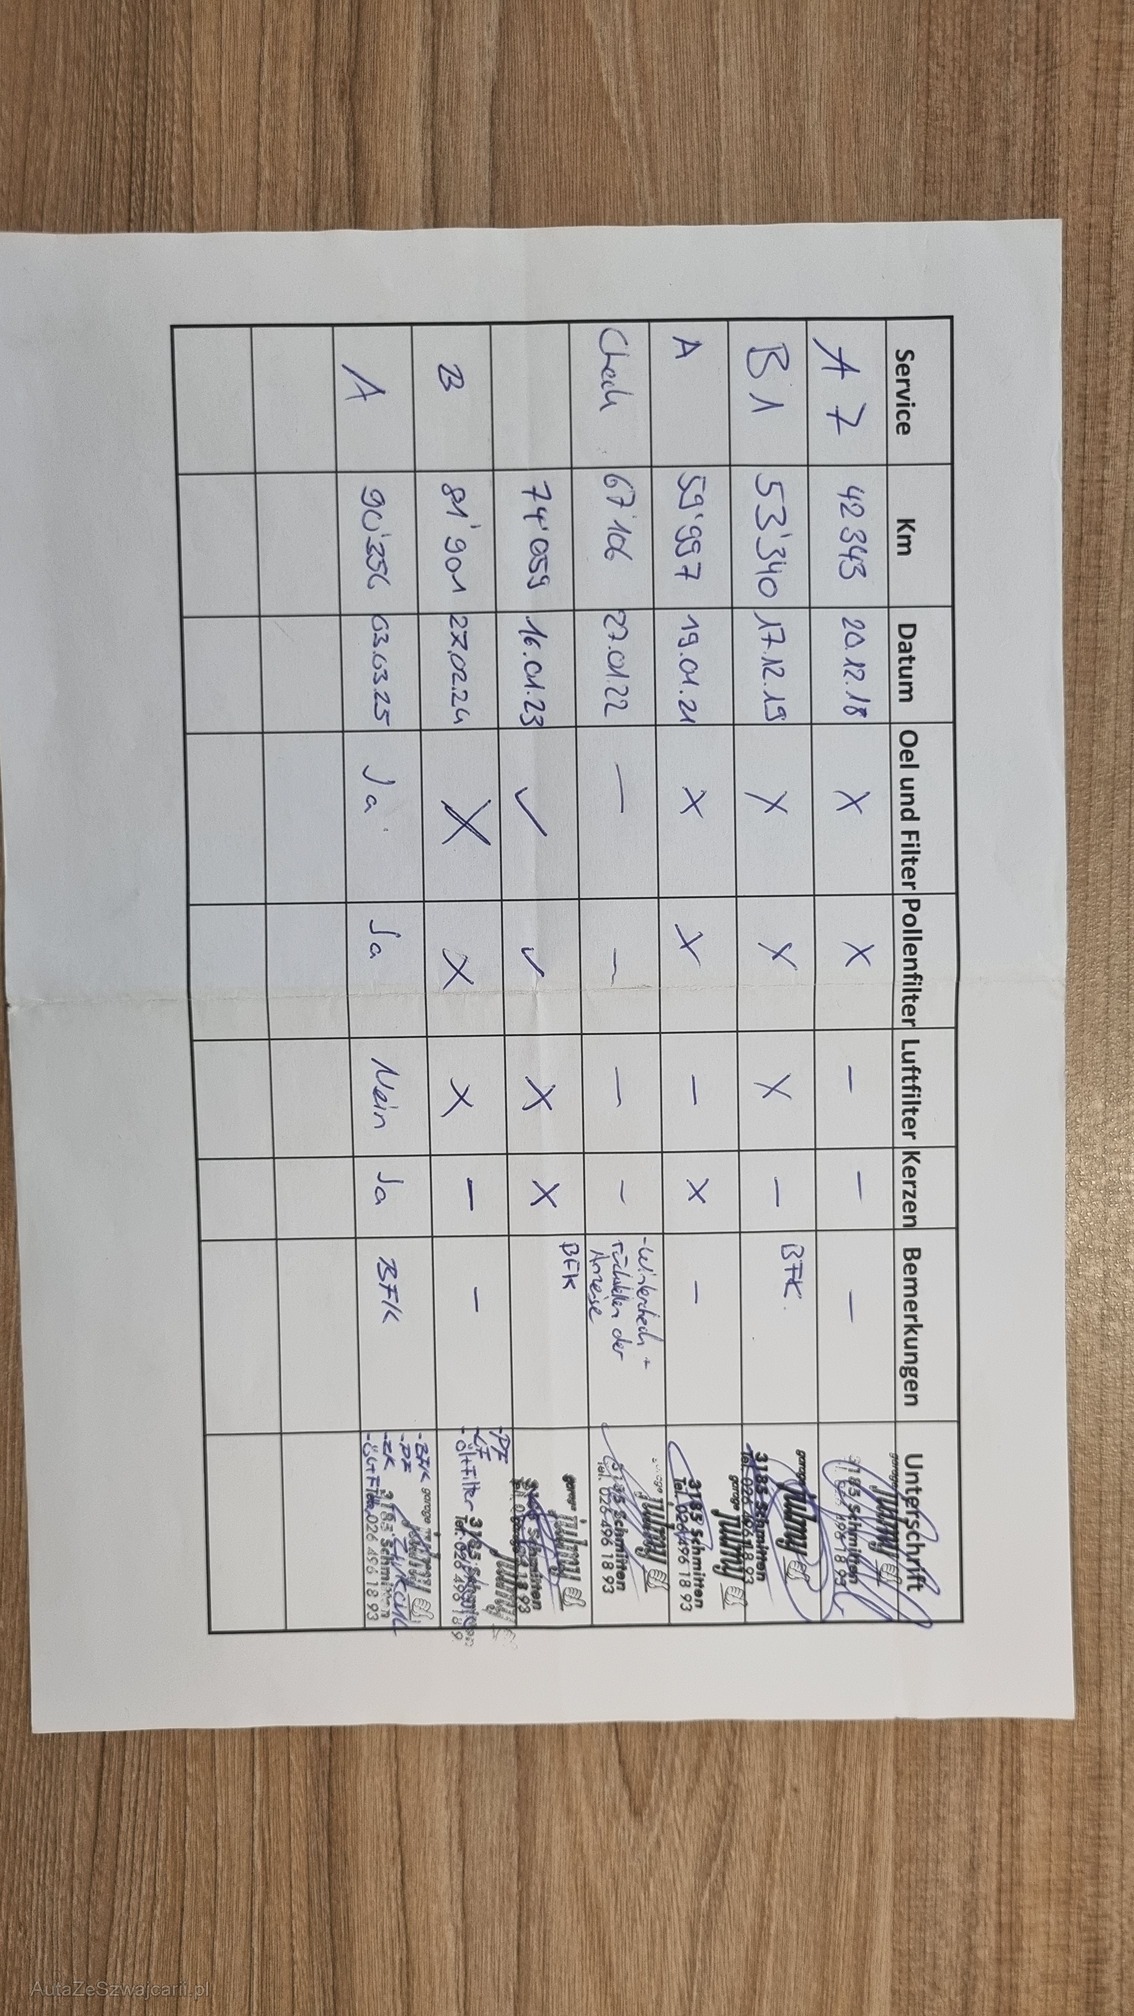 Service Km Datum Oel und Filter Pollenfilter Luftfilter Kerzen Bemerkungen Unterschrift
A 7 42 343 20.12.18 X X – – – garage julmy 3185 Schmitten Tel. 026 496 18 93
B 1 53'340 17.12.19 X X X – BFK. garage julmy 3185 Schmitten Tel. 026 496 18 93
A 59'997 19.01.21 X X – X – garage julmy 3185 Schmitten Tel. 026 496 18 93
Check 67'106 27.01.22 – – – – -Wintercheck + rückstellen der Anzeige garage julmy 3185 Schmitten Tel. 026 496 18 93
74'059 16.01.23 ✓ ✓ X X BFK garage julmy 3185 Schmitten Tel. 026 496 18 93
B 81'901 27.02.24 X X X – – -PF -LF -Öl+Filter julmy 3185 Schmitten Tel. 026 496 18 9
A 90'256 03.03.25 Ja Ja Nein Ja BFK -BFK -PF -ZK -Öl+Filter garage julmy 3185 Schmitten 026 496 18 93
AutaZeSzwajcarii.pl